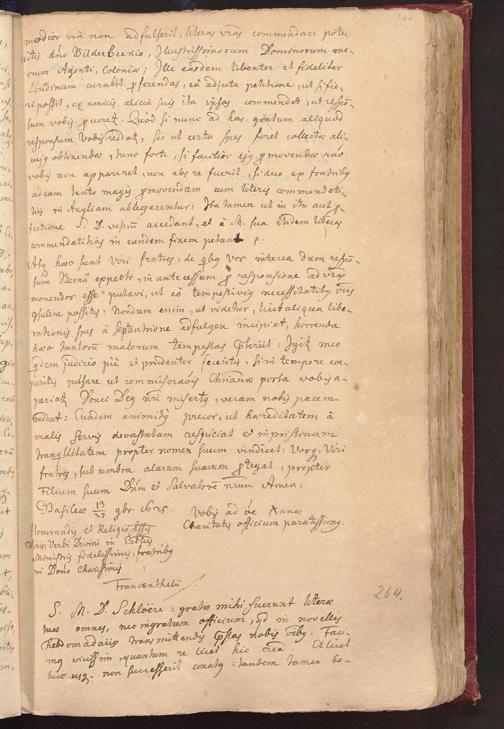 modior via non adfulserit, literas vras commendare potu-
eritis dno Bilderbeekio, Illustrissimorum Dominorum me-
orum Agenti, Coloniæ; Ille easdem libenter et fideliter
Londinum curabit pferendas, eâ adjuta petitione, ut si fie-
ri possit, ex amicis alicui suis ita ipsas commendet, ut respon-
sum vobis pcuret. Quod si nunc ad has gratum aliquod
responsum vobis redat; sic ut certa spes foret collectæ ali-
cujs obtinendæ, tunc forte, si facilior ejs pmovendæ rao
vobis non appareret, non abs re fuerit, si duo ex fratribs
ad eam tanto magis pmovendam cum literis commendati-
tiis in Angliam ablegarentur: Ita tamen ut in itu aut p-
S. D. accedant, et à M. sua itidem literas
commendatitias in eundem finem petant.
Atq hæc sunt viri fratres, de qbs vos interea dum respon-
sum Bernâ expecto, in antecessum p responsione ad vras
monendos esse putavi, ut eò tempestivis necessitatibs vris
consulere possitis: Nondum enim, ut videtur, licet aliqua libe-
rationis spes à septentrione adfulgere incipiat, horrenda
hæc tantorum malorum tempestas : Igitr meo
qdem judicio piè et prudenter facietis, si in tempore coe-
peritis pulsare ut commiserationis Chrianæ porta vobis a-
periatr Donec Deus nri miserts, veram nobis pacem
reddat: Eundem animits precor, ut hæreditatem à
malis servis devastatam respiciat et in pristinam
tranqllitatem propter nomen suum vindicet: Vosqs, Viri
fratres, sub umbra alarum suarum ptegat, propter
Filium suum Dnm et Salvatorē nrum Amen:
Basileæ 13/23 gbr. 1625. Vobis ad oē Xanæ
Charitatis officium paratissimus.
Honorandis et Religiosissis
Chri Verbi Divini in Ecclesiis
Ministris fidelissimis, fratribs
in Dno Charissimis
Francenthalii
264.
S. M. D. Schlöeri: gratæ mihi fuerunt literæ
tuæ omnes, nec ingratum officium, qd in novellis
hebdomadariis transmittendis ipsas nobis . Faci-
mq vicissim quantum re licet hic . Licet
huc usq non successerit conats: tandem tamen be-